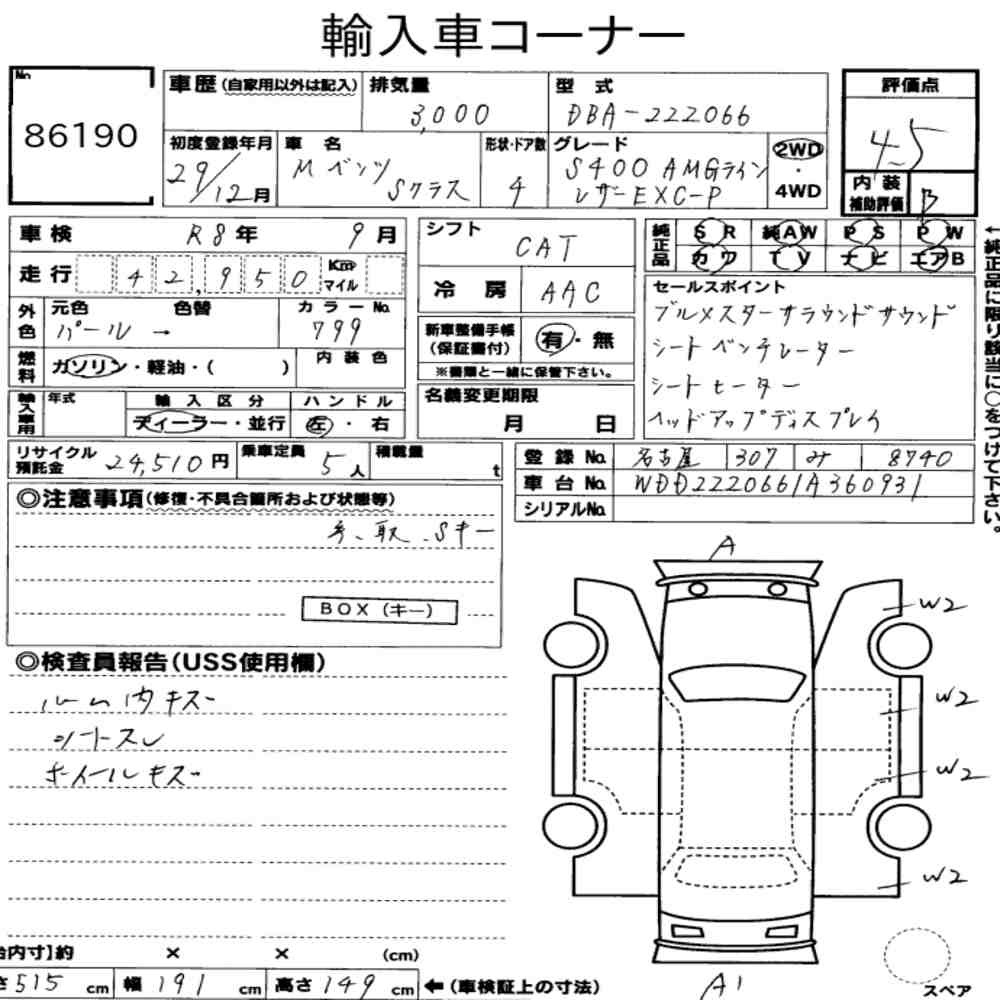 輸入車コーナー
No. 86190
車歴(自家用以外は記入) 排気量 3,000 型式 DBA-222066
評価点 4.5
初度登録年月 29/12月 車名 Mベンツ Sクラス 形状・ドア数 4 グレード S400 AMGライン レザーEXC-P 2WD・4WD
内装補助評価 B
車検 R8年 9月
走行 42,950 Km マイル
外色 元色 パール → 色替 カラーNo. 799
燃料 ガソリン・軽油・( ) 内装色
輸入車用 年式 輸入区分 ディーラー・並行 ハンドル 左・右
リサイクル預託金 24,510円 乗車定員 5人 積載量 t
シフト CAT
冷房 AAC
新車整備手帳(保証書付) 有・無
※書類と一緒に保管下さい。
名義変更期限 月 日
純正品 SR 純AW PS PW
カワ TV ナビ エアB
セールスポイント
ブルメスターサラウンドサウンド
シートベンチレーター
シートヒーター
ヘッドアップディスプレイ
←純正品に限り該当に○をつけて下さい。
登録No. 名古屋 307 み 8740
車台No. WDD2220661A360931
シリアルNo.
◎注意事項(修復・不具合箇所および状態等)
手、取、Sキー
BOX(キー)
◎検査員報告(USS使用欄)
ルーム内キズ
シートスレ
ホイールキズ
A
W2
W2
W2
W2
A1
スペア
台内寸】約 × × (cm)
さ515cm 幅191cm 高さ149cm ←(車検証上の寸法)